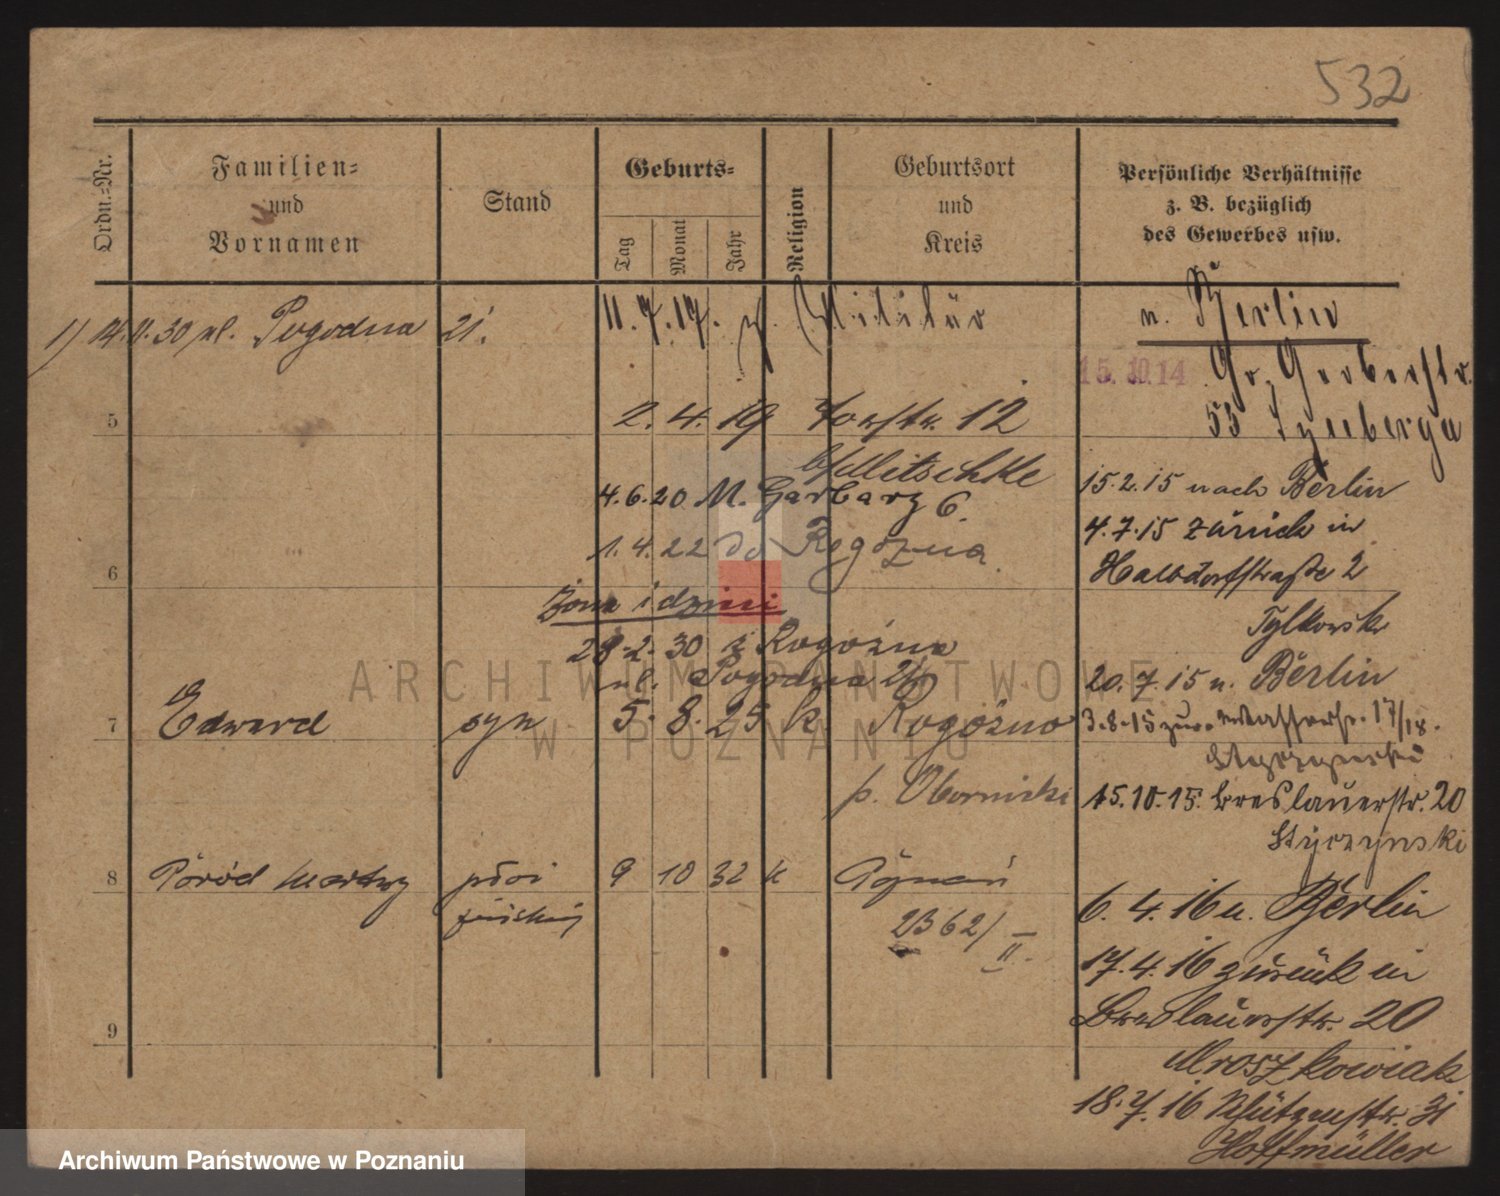 532
Ordn.-Nr.
Familien-
und
Vornamen
Stand
Geburts-
Tag
Monat
Jahr
Religion
Geburtsort
und
Kreis
Persönliche Verhältnisse
z. B. bezüglich
des Gewerbes usw.
1) 14.11.30 ul. Pogodna 21.
11.7.17. z. Militär
2.4.19 Torstr. 12
b/ Mitschke
4.6.20 M. Garbary 6.
1.4.22 do Rogozna.
Żona i dzieci
28.2.30 z Rogoźna
ul. Pogodna 21
5
6
7 Edward syn 5. 8. 25 k Rogoźno
p. Obornicki
8 Poród martwy płci
żeńskiej
9 10 32 k Poznań
2362/II.
9
n. Berlin
15. 10. 14 Gr. Gerberstr.
53
15.2.15 nach Berlin
4.7.15 zurück in
Halbdorfstraße 2
Tylkowski
20.7.15 n. Berlin
3.8.15 zur. Wasserstr. 17/18.
15.10.15. Breslauerstr. 20
Styczynski
6.4.16 n. Berlin
17.4.16 zurück in
Breslauerstr. 20
Mroszkowiak
18.7.16 Schützenstr. 31
Hoffmüller
ARCHIWUM PAŃSTWOWE
W POZNANIU
Archiwum Państwowe w Poznaniu